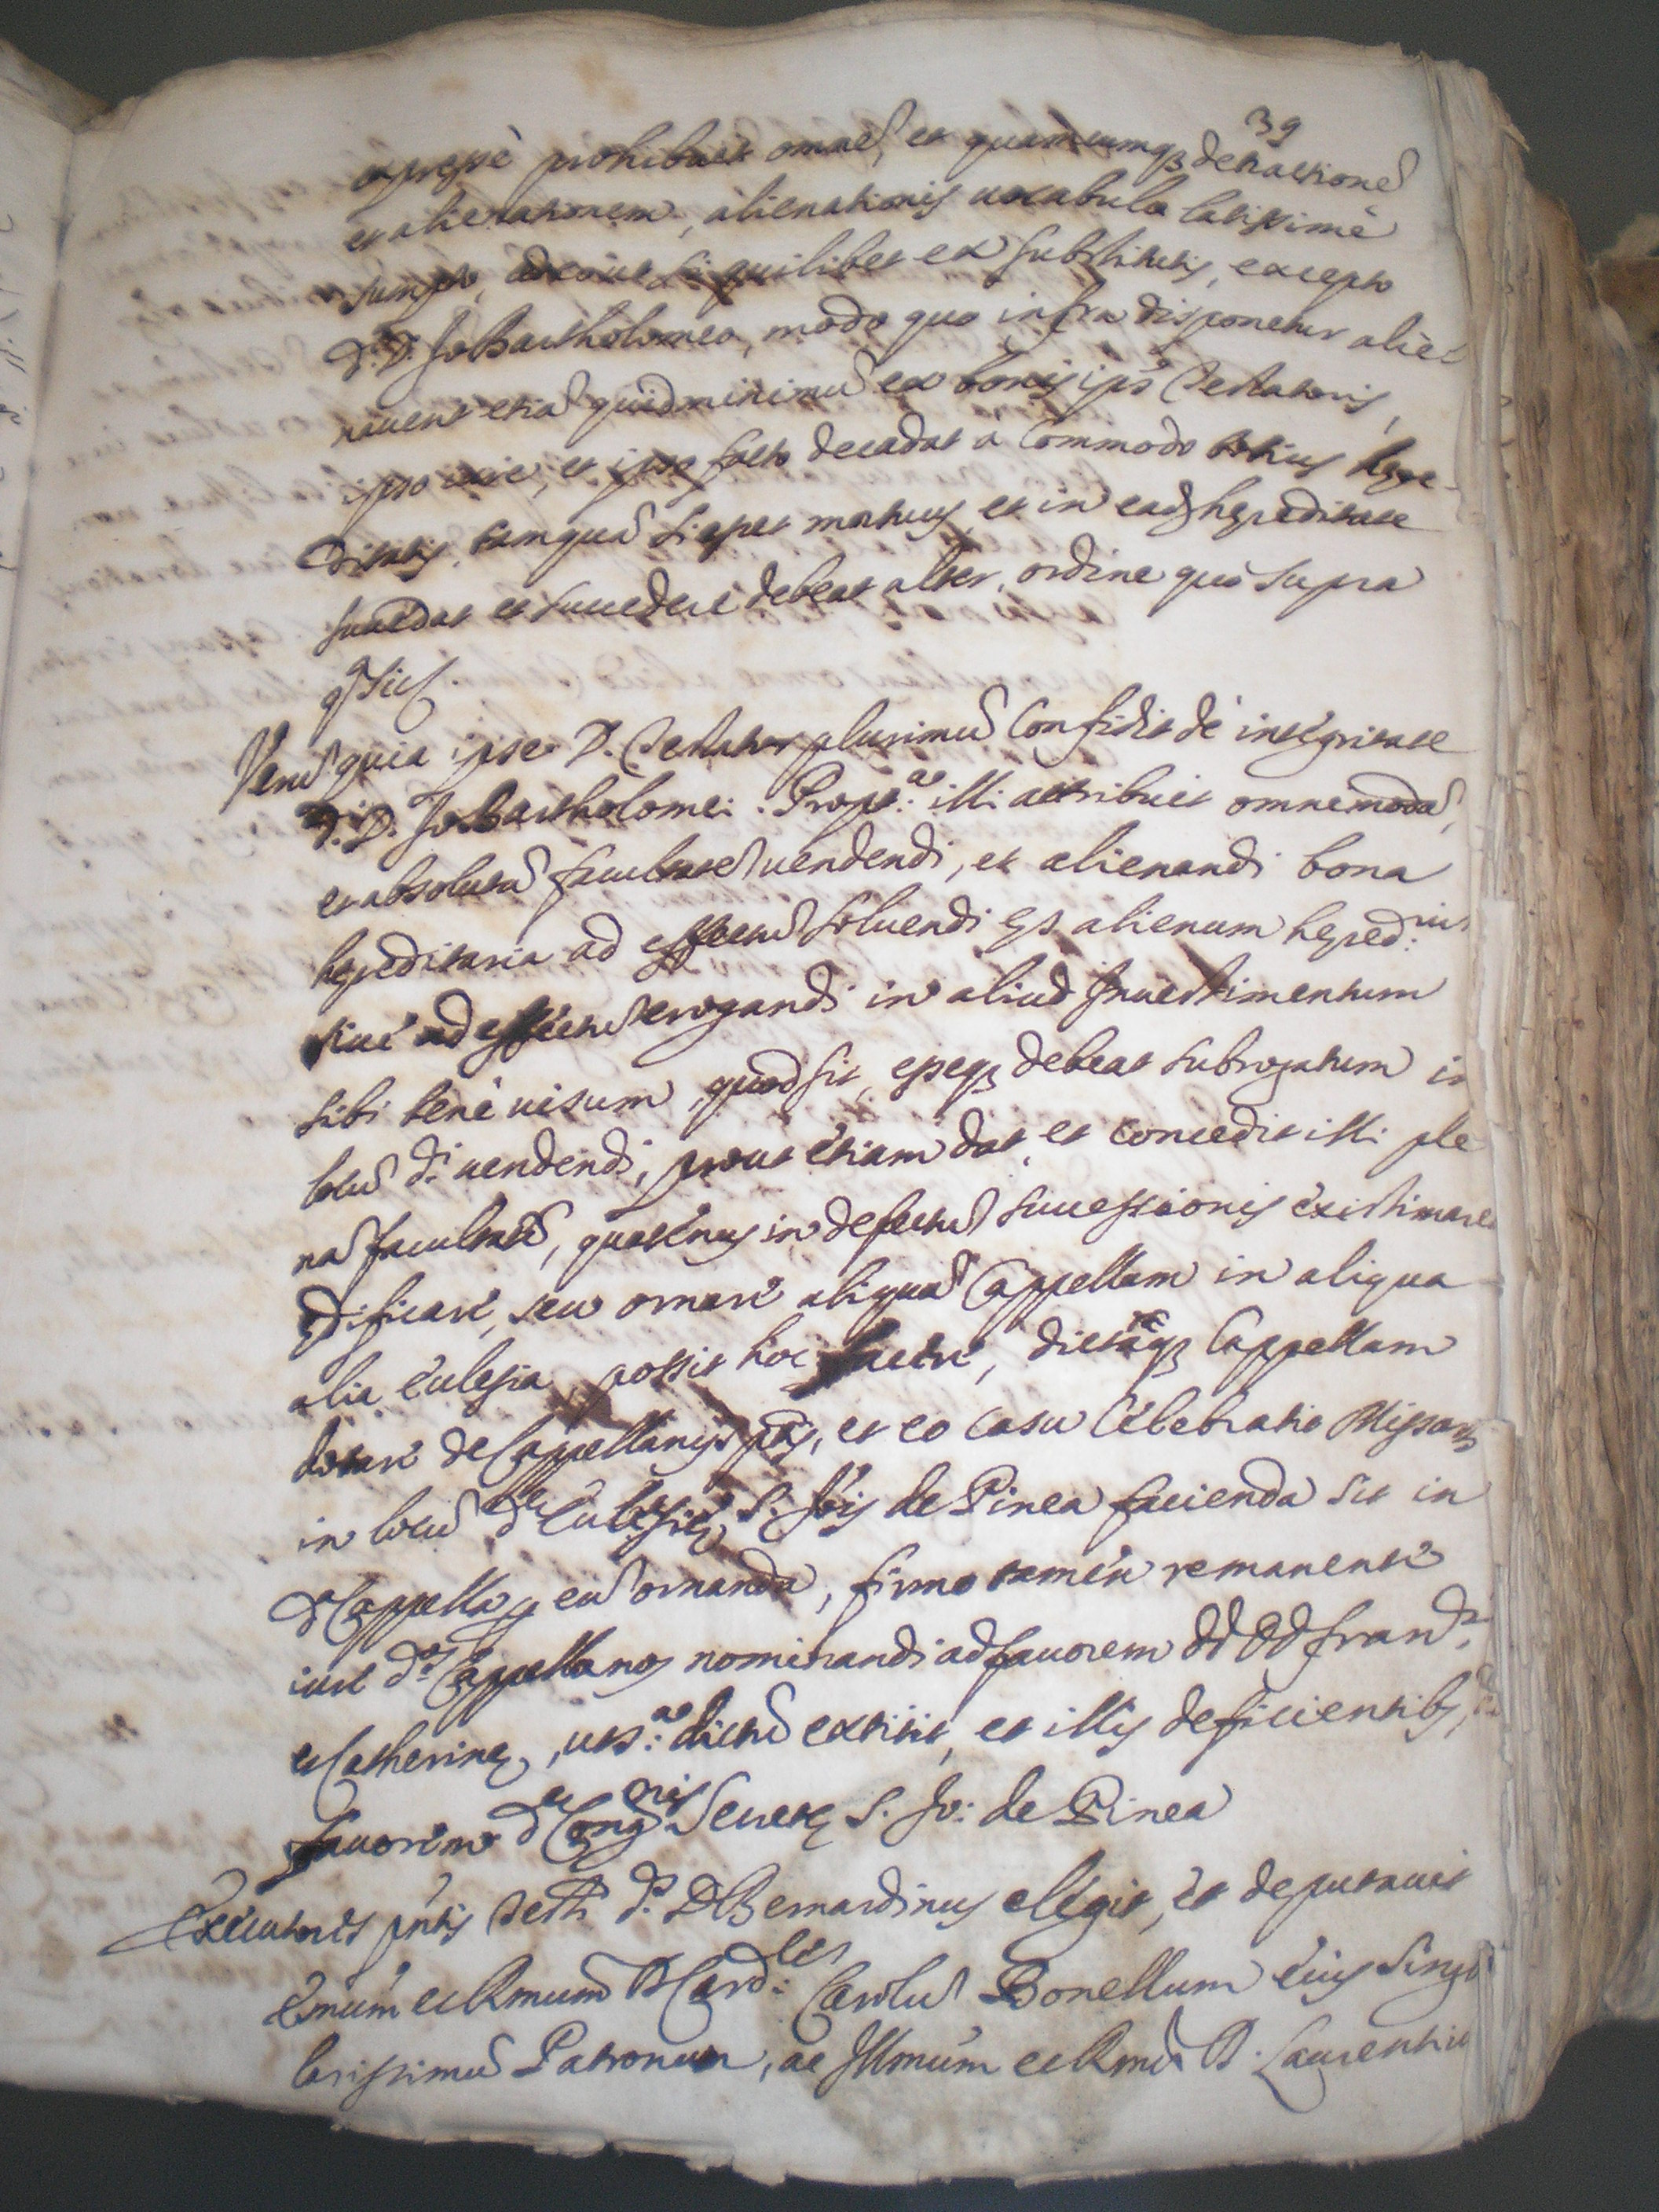 39
expressè prohibuit omnem, et quamcumque detractionem
et alienationem, alienationis vocabulo latissimè
sumpto, adeout si quilibet ex substitutis, excepto
d. D. Jo Bartholomeo, modo quo infra disponetur alie
nauerit etiam quid minimum ex bonis ipsius Testatoris,
ipso iure, et ipso facto decadat à commodo totius hęre-
ditatis, tamquam si esset mortuus, et in eadem hęreditate
succedat et succedere debeat alter, ordine quo supra

Verum quia ipse D. Testator plurimum confidit de integritate
d. D. Jo Bartholomei. Propa. illi attribuit omnemodam,
et absolutam facultatem uendendi, et alienandi bona
hęreditaria ad effectum soluendi ęs alienum hęred:
siue ad effectum erogandi in aliud Inuestimentum
sibi benè uisum, quod sit, esseque debeat subrogatum in
locum di uendendi, prout etiam dat, et concedit illi ple
nam facultatem, quatenus in defectum successionis existimaret
ędificare, seu ornare aliquam Cappellam in aliqua
alia Ecclesia, possit hoc facere, dictamque Cappellam
dotare de Cappellanijs ptis, et eo casu celebratio Missarum
in locum de Ecclesię S. Jois de Pinea facienda sit in
da Cappella per eum ornanda, firmo tamen remanente
iure dos Cappellanos nominandi ad fauorem dd DD Franc
et Catherinę, uts.a dictum extitit, et illis deficientibus,
fauorem de Congnis Secretę S. Jo: de Pinea
Executores pntis Testti ds. D Bernardinus elegit, et deputauit
Emum et Rmum D Card:lem Carolum Bonellum eius singu
larissimum Patronum, ac Illmum et Rmum D. Laurentiu